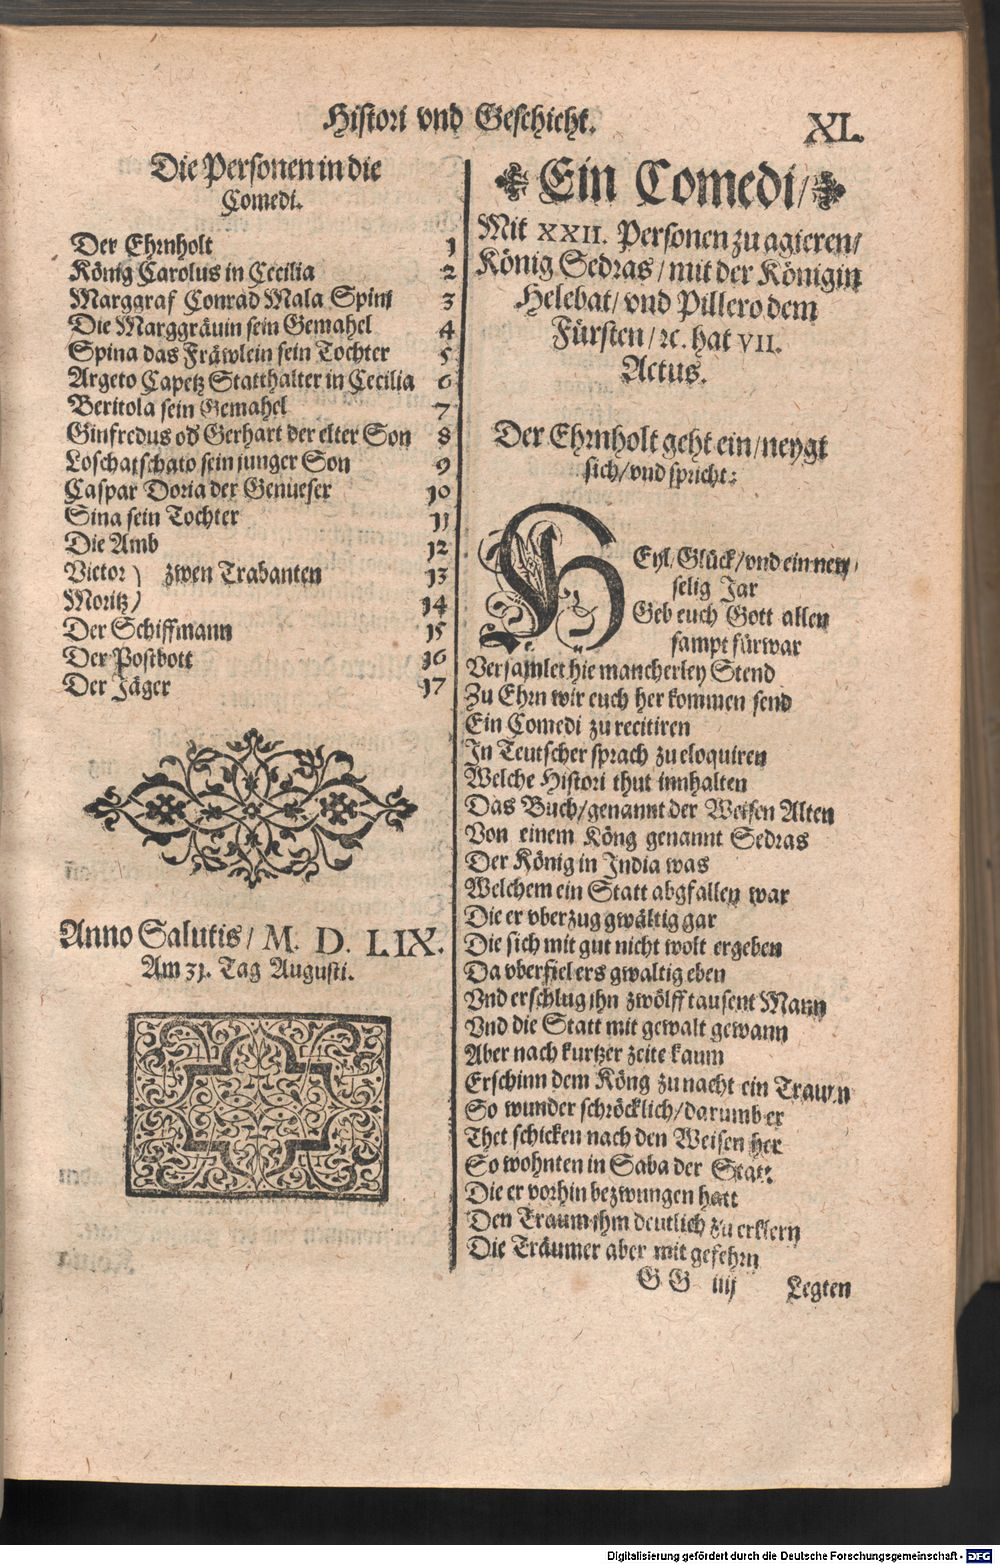 Histori vnd Geschicht.
XL.
Die Personen in die
Comedi.
Der Ehrnholt 1
König Carolus in Cecilia 2
Marggraf Conrad Mala Spini 3
Die Marggräuin sein Gemahel 4
Spina das Fräwlein sein Tochter 5
Argeto Capetz Statthalter in Cecilia 6
Beritola sein Gemahel 7
Ginfredus od Gerhart der elter Son 8
Loschatschato sein junger Son 9
Caspar Doria der Genueser 10
Sina sein Tochter 11
Die Amb 12
Victor ) zwen Trabanten 13
Moritz ) 14
Der Schiffmann 15
Der Postbott 16
Der Jäger 17
Anno Salutis / M. D. LIX.
Am 31. Tag Augusti.
Ein Comedi /
Mit XXII. Personen zu agieren /
König Sedras / mit der Königin
Helebat / vnd Pillero dem
Fürsten / ꝛc. hat VII.
Actus.
Der Ehrnholt geht ein / neygt
sich / vnd spricht:
HEyl / Glück / vnd ein new
selig Jar
Geb euch Gott allen
sampt fürwar
Versamlet hie mancherley Stend
Zu Ehrn wir euch her kommen send
Ein Comedi zu recitiren
In Teutscher sprach zu eloquiren
Welche Histori thut innhalten
Das Buch / genannt der Weisen Alten
Von einem Köng genannt Sedras
Der König in India was
Welchem ein Statt abgfallen war
Die er vberzug gwältig gar
Die sich mit gut nicht wolt ergeben
Da vberfiel ers gwaltig eben
Vnd erschlug ihn zwölff tausent Mann
Vnd die Statt mit gewalt gewann
Aber nach kurtzer zeite kaum
Erschinn dem Köng zu nacht ein Trawm
So wunder schröcklich / darumb er
Thet schicken nach den Weisen her
So wohnten in Saba der Statt
Die er vorhin bezwungen hatt
Den Traum ihm deutlich zu erklern
Die Träumer aber mit gefehrn
G G iiij Legten
Digitalisierung gefördert durch die Deutsche Forschungsgemeinschaft - DFG